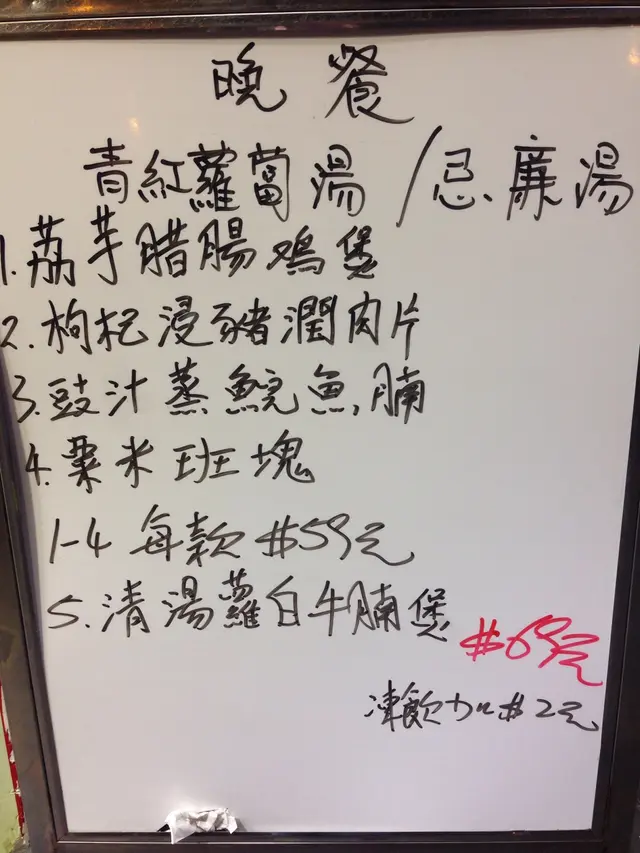 晚餐
青紅蘿蔔湯/忌廉湯
1.荔芋腊腸鸡煲
2.枸杞浸豬潤肉片
3.豉汁蒸鯇魚腩
4.粟米班塊
1-4 每款 $59元
5.清湯蘿白牛腩煲
$69元
凍飲加$2元